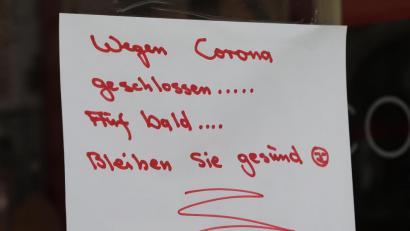 Wegen Corona
geschlossen.....
Auf bald....
Bleiben Sie gesund
CO